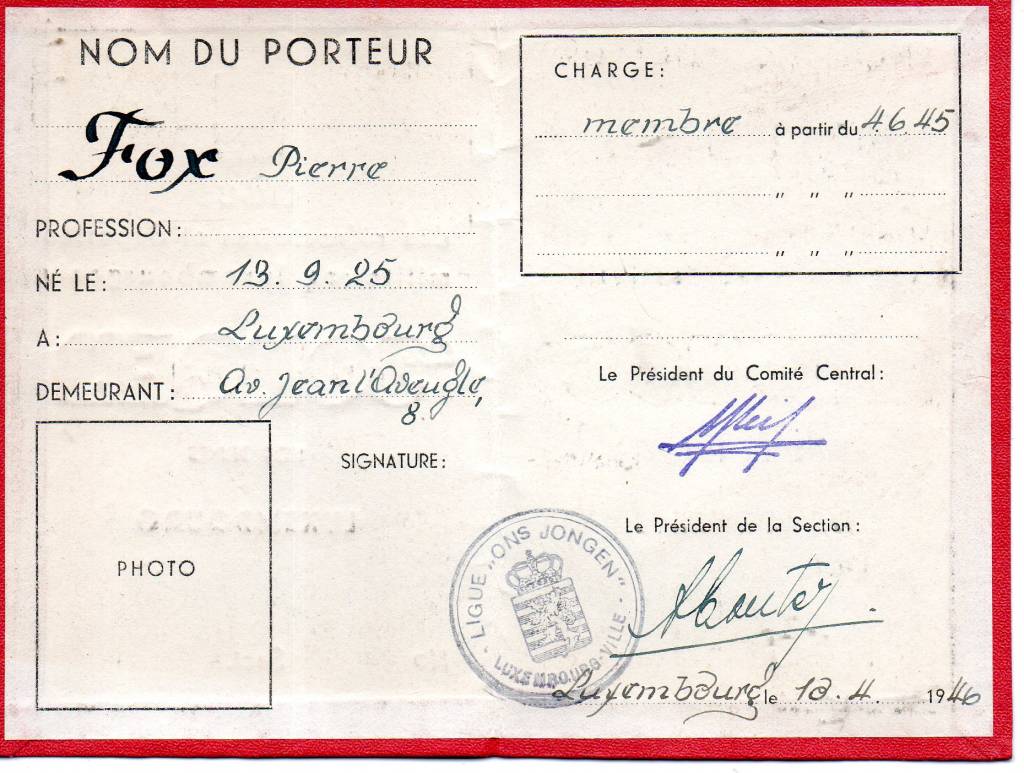 NOM DU PORTEUR
Fox Pierre
PROFESSION:
NÉ LE: 13. 9. 25
A: Luxembourg
DEMEURANT: Av. Jean l'Aveugle,
8.
PHOTO
SIGNATURE:
CHARGE:
membre à partir du 4.6.45
" " "
" " "
Le Président du Comité Central:
Le Président de la Section:
LIGUE "ONS JONGEN"
LUXEMBOURG-VILLE
Luxembourg le 13.4. 1946